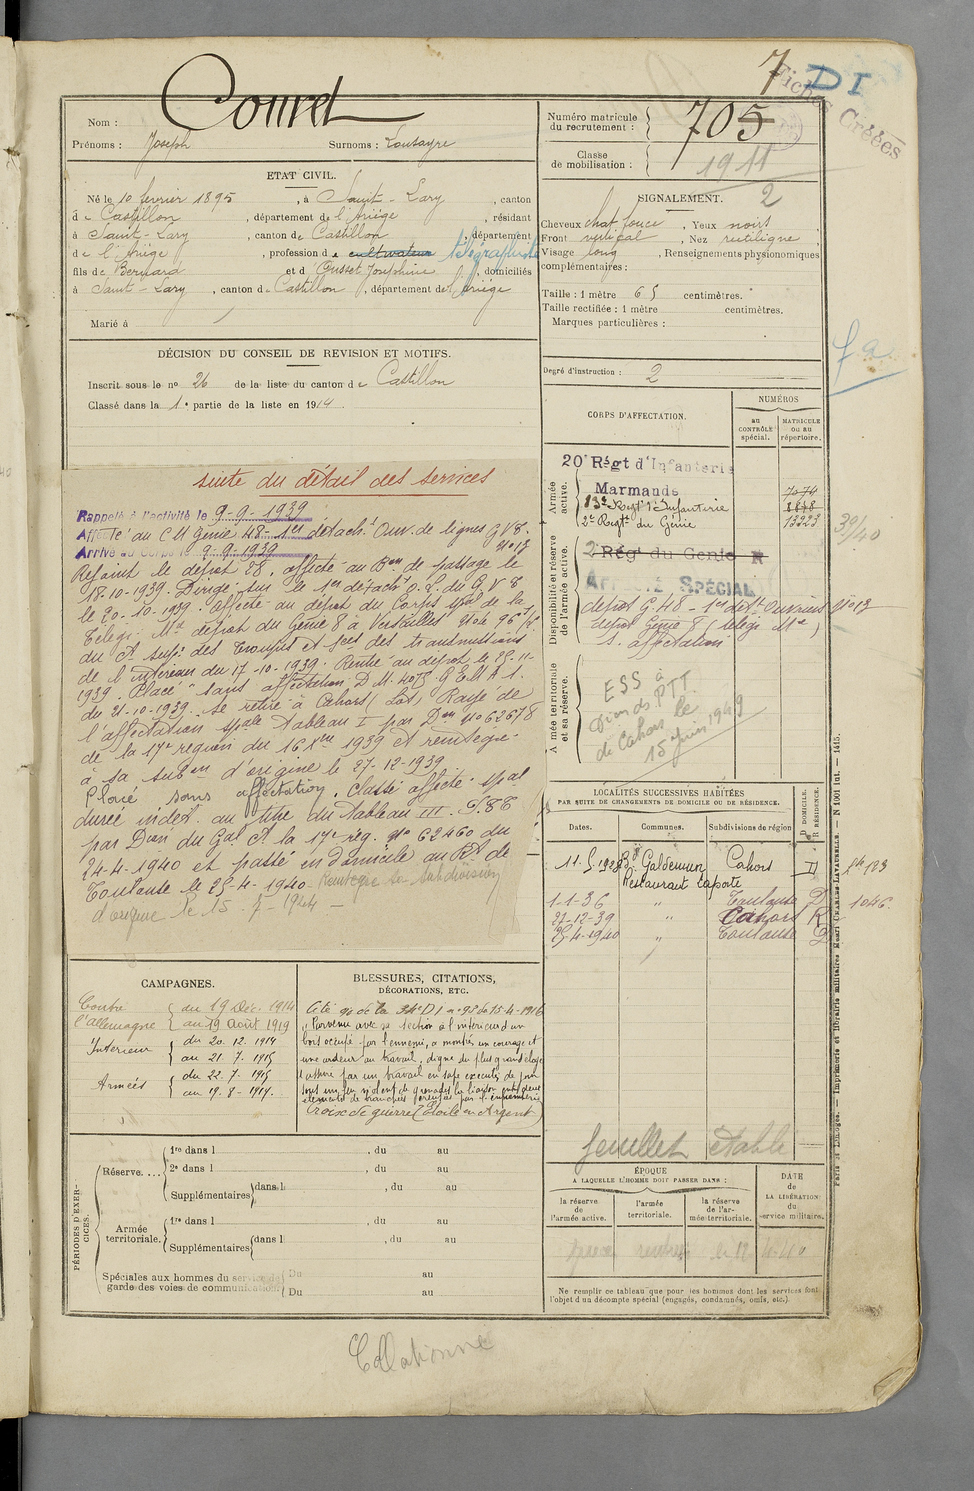 7 DI
Fiches Créées
Nom : Couret
Prénoms : Joseph Surnoms : Lousayre
Numéro matricule du recrutement : 705
Classe de mobilisation : 1911
2
ETAT CIVIL.
Né le 10 février 1895, à Saint-Lary, canton
de Castillon, département de l'Ariège, résidant
à Saint-Lary, canton de Castillon, département
de l'Ariège, profession de cultivateur télégraphiste
fils de Bernard et d Ousset Joséphine, domiciliés
à Saint-Lary, canton de Castillon, département de l'Ariège
Marié à
SIGNALEMENT.
Cheveux chat. foncé, Yeux noirs
Front vertical, Nez rectiligne,
Visage long, Renseignements physionomiques
complémentaires :
Taille : 1 mètre 65 centimètres.
Taille rectifiée : 1 mètre centimètres.
Marques particulières :
Degré d'instruction : 2
DÉCISION DU CONSEIL DE REVISION ET MOTIFS.
Inscrit sous le nº 26 de la liste du canton de Castillon
Classé dans la 1e partie de la liste en 1914.
suite du détail des services
Rappelé à l'activité le 9-9-1939
Affecté au CM Génie 48 - 1er détacht Ouv. de lignes G V 8.
Arrivé au Corps le 9-9-1939 nº 13
Rejoint le dépot 28, affecté au Bon de passage le
18.10-1939. Dirigé sur le 1er détacht g. L. du G. V 8
le 20-10-1939. affecté au dépot du Corps spal de la
Télégr. Mre dépot du Génie 8 à Versailles
du Ct supr des Troupes et sces des transmissions
de l'intérieur du 17-10-1939. Rentré au dépot le 25-11-
1939. Placé "sans affectation D.M. 4075
du 21-10-1939. se retire à Cahors (Lot) Rayé de
l'affectation spale Tableau I par Don nº 62678
de la 17e région du 16 Xbre 1939 et réintégré
à sa subon d'origine le 27-12-1939.
Placé sans affectation, classé affecté spal
durée indét. au titre du Tableau III
par Dion du Gal Ct la 17e rég. nº 62460 du
24-4-1940 et passé en domicile au Rt de
Toulouse le 25-4-1940. Réintégré sa subdivision
d'origine le 15-7-1944 —
CORPS D'AFFECTATION.
NUMÉROS
au CONTRÔLE spécial.
MATRICULE ou au répertoire.
Armée active.
20e Régt d'Infanterie
Marmande 7074
83e Regt d'Infanterie
2e Regt du Génie 13223
39/40
Disponibilité et réserve de l'armée active.
2e Régt du Génie R
Affecté SPÉCIAL
dépot G. 48 - 1er dét. Ouvriers nº 13
dépot Génie 8 (télégr Mre)
s. affectation
Armée territoriale et sa réserve.
ESS à
PTT
de Cahors le
15 juin 1949
LOCALITÉS SUCCESSIVES HABITÉES
PAR SUITE DE CHANGEMENTS DE DOMICILE OU DE RÉSIDENCE.
Dates. Communes. Subdivisions de région D DOMICILE. R RÉSIDENCE.
11-5-1928 Bd Galdemun Cahors D
Restaurant Laporte
1-1-36 " Toulouse D 1046.
27-12-39 " Cahors R
25-4-1940 " Toulouse D
feuillet établi
CAMPAGNES.
Contre l'allemagne du 19 Déc. 1914
au 19 Août 1919
Intérieur du 20.12.1914
au 21.7.1915
Armées du 22.7.1915
au 19.8.1919.
BLESSURES, CITATIONS,
DÉCORATIONS, ETC.
Cité O. de la 34e D I nº 98 du 15-4-1916
"Parvenu avec sa section à l'intérieur d'un
bois occupé par l'ennemi, a montré un courage et
une ardeur au travail, digne du plus grand éloge
a assuré par un travail en sape exécuté de jour
sous un feu violent de grenades la liaison entre deux
éléments de tranchées occupés par l'infanterie
Croix de guerre (Etoile en Argent)
PÉRIODES D'EXERCICES.
Réserve.... 1re dans l , du au
2e dans l , du au
Supplémentaires dans l , du au
Armée territoriale. 1re dans l , du au
Supplémentaires dans l , du au
Spéciales aux hommes du service de
garde des voies de communication
Du au
Du au
ÉPOQUE
A LAQUELLE L'HOMME DOIT PASSER DANS :
la réserve de l'armée active.
l'armée territoriale.
la réserve de l'armée territoriale.
DATE DE LA LIBÉRATION du service militaire.
Ne remplir ce tableau que pour les hommes dont les services font
l'objet d'un décompte spécial (engagés, condamnés, omis, etc.)
Paris et Limoges. — Imprimerie et librairie militaires Henri CHARLES-LAVAUZELLE. — N 1001 lut. — 1415.
Collationné